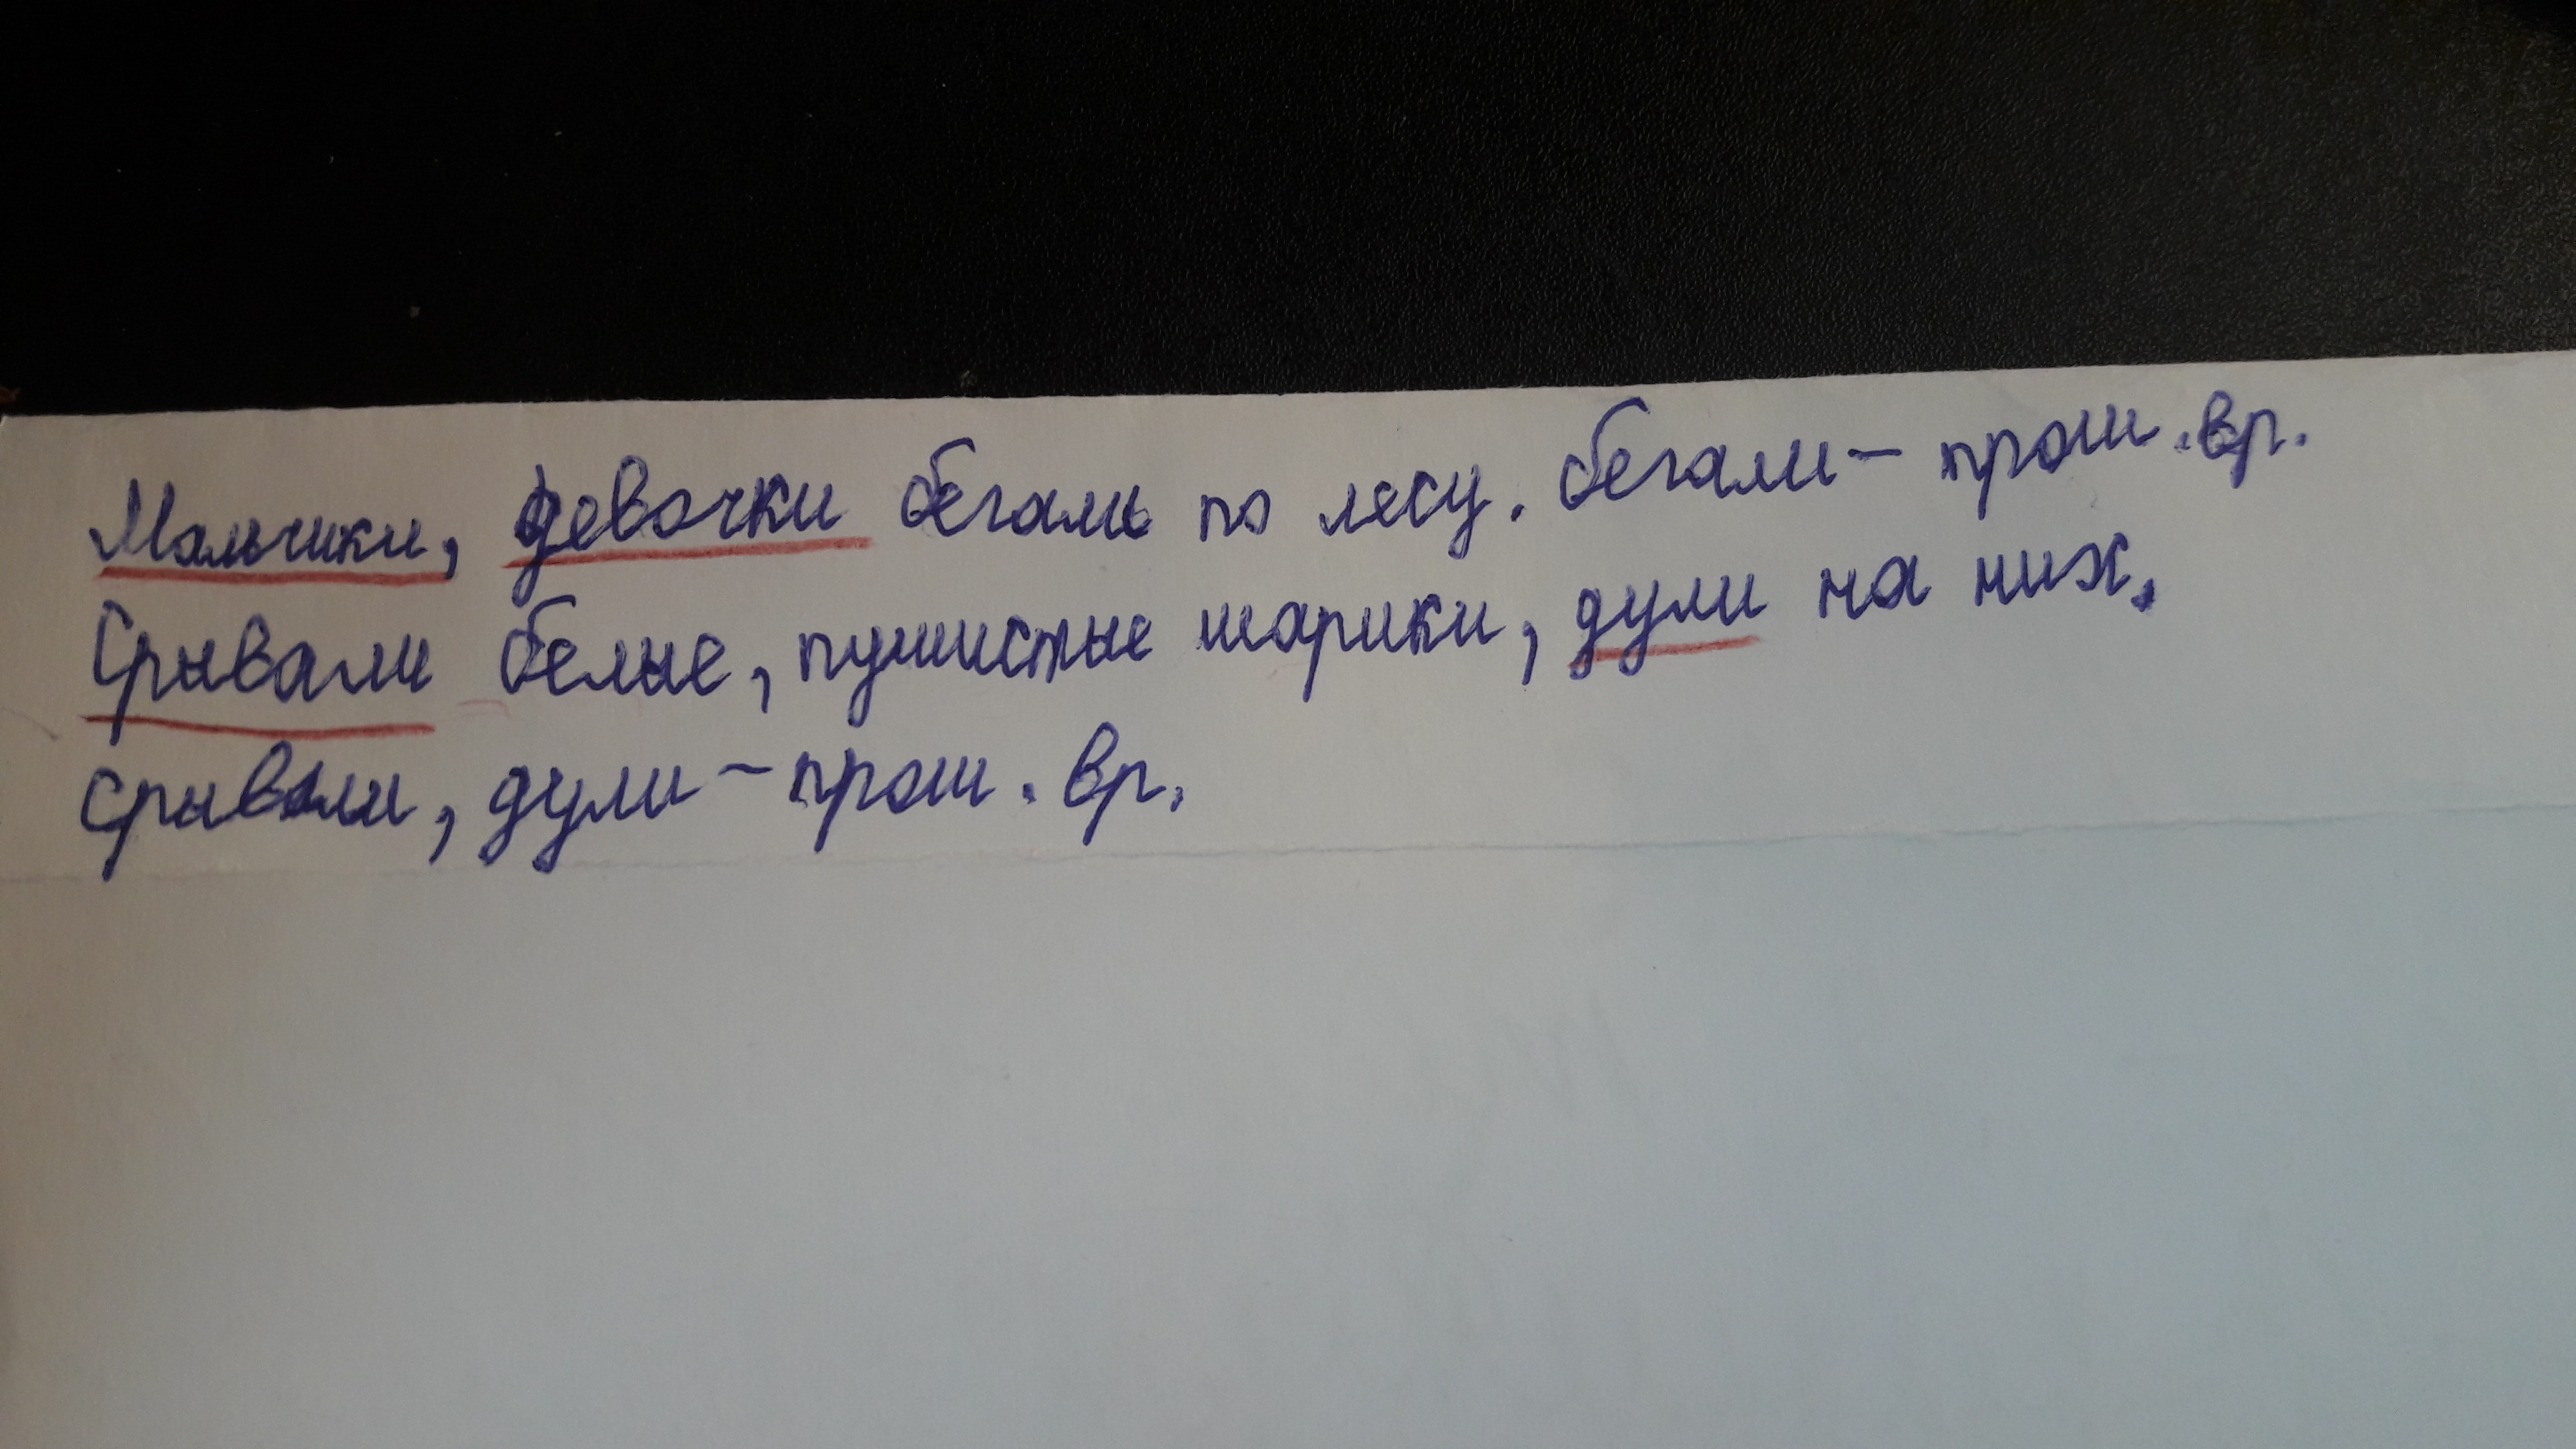 Мальчики, девочки бегали по лесу. бегали - прош. вр.
Срывали белые, пушистые шарики, дули на них.
срывали, дули - прош. вр.